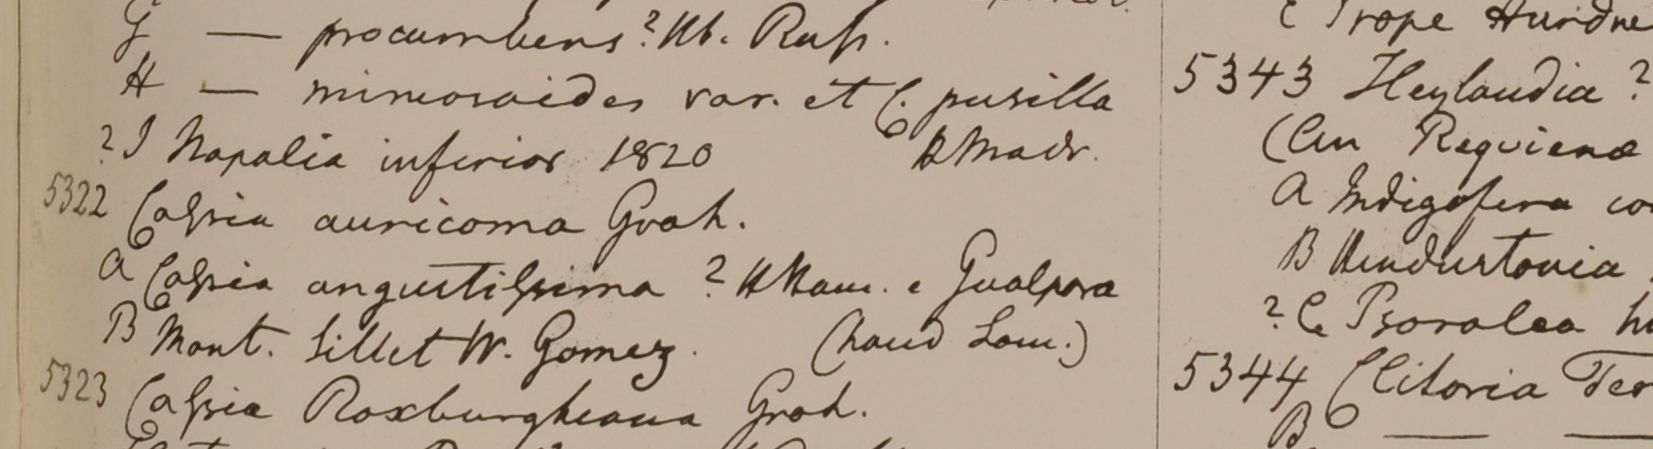 G — procumbens? Hb. Russ.
H — mimosoides var. et C. pusilla
? I Napalia inferior 1820 B Madr.
5322 Cassia auricoma Grah.
a Cassia angustissima ? H Ham. e Gualpara
B Mont. Sillet W. Gomez. (haud Lam.)
5323 Cassia Roxburghiana Grah.
C Prope Hurdw
5343 Heylandia ?
(an Requiena
a Indigofera
B Hindustania
? C Psoralea
5344 Clitoria Ter
B — —